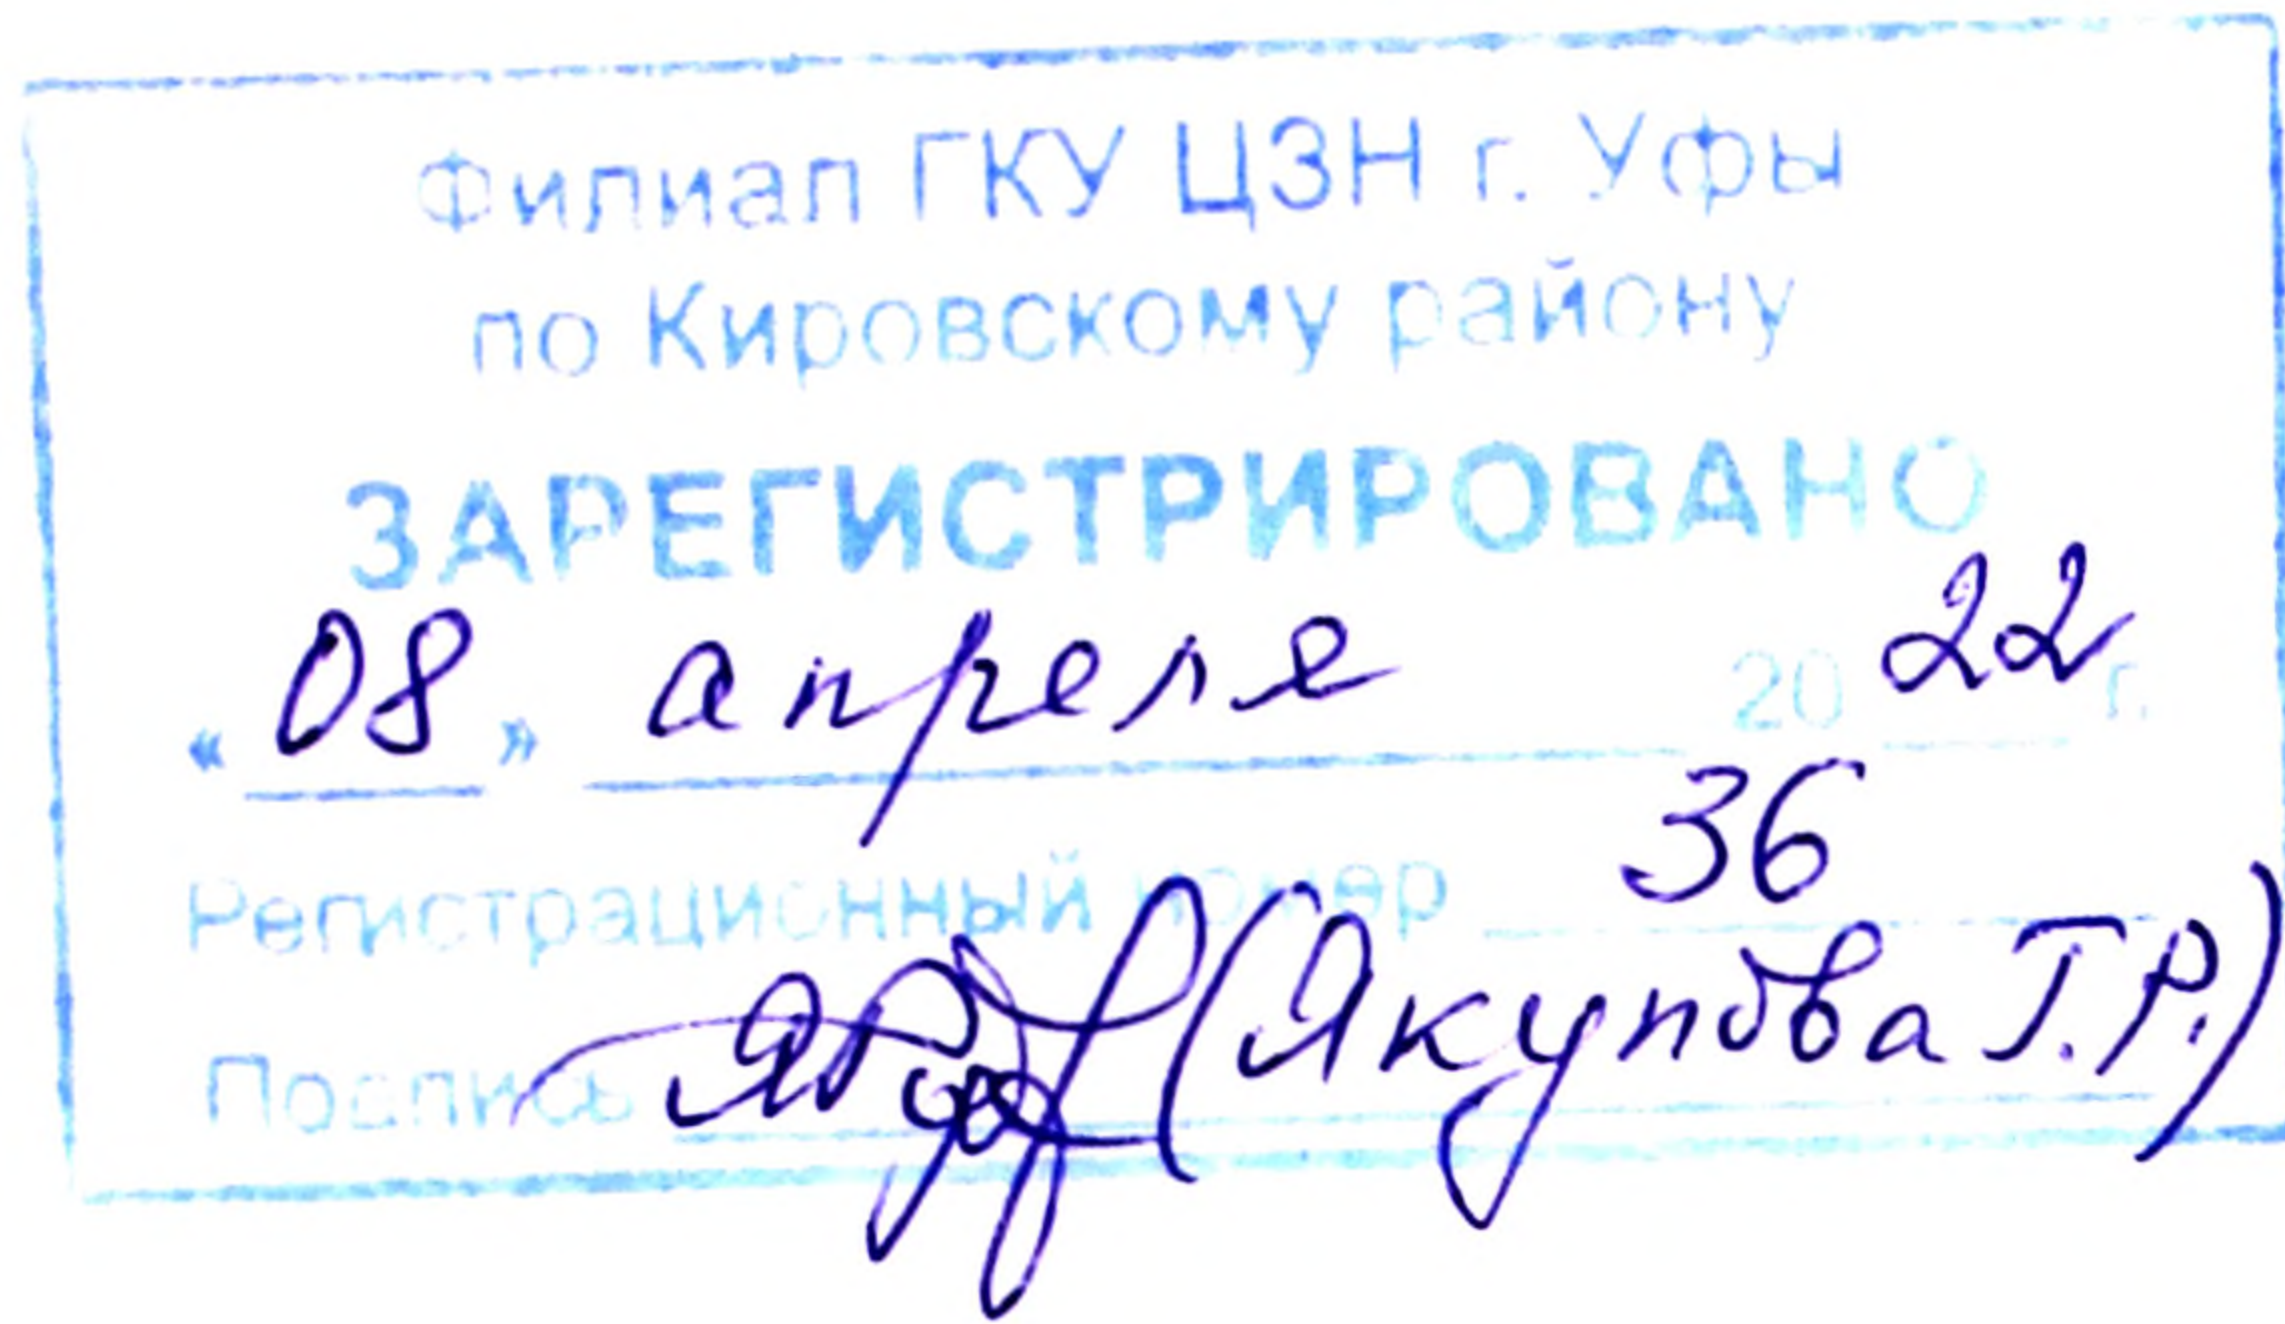 Филиал ГКУ ЦЗН г. Уфы
по Кировскому району
ЗАРЕГИСТРИРОВАНО
« 08 » апреля 20 22 г.
Регистрационный номер 36
Подпись (Якупова Г.Р.)